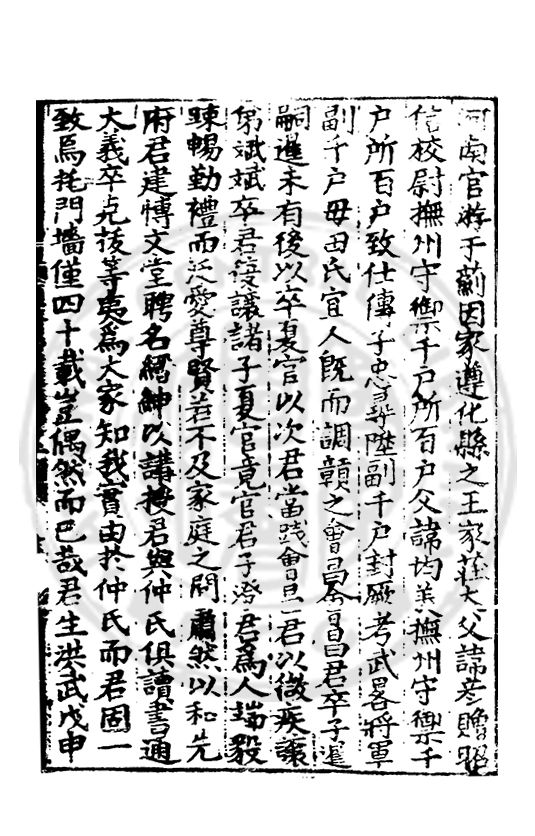 河南官游于薊因家遵化縣之王家莊大父諱彦贈昭
信校尉撫州守禦千戶所百戶父諱均美撫州守禦千
戶所百戶致仕傳子忠尋陞副千戶封厥考武畧將軍
副千戶毋田氏宜人既而調贛之會昌會昌君卒子暹
嗣暹未有後以卒夏官以次君當踐會昌君以微疾讓
弟斌斌卒君復讓諸子夏官竟官君子澄君為人端毅
踈暢勤禮而泛愛尊賢若不及家庭之間肅然以和先
府君建愽文堂聘名縉紳以講授君與仲氏俱讀書通
大義卒之後等夷為大家知我實由於仲氏而君固一
致焉托門墻僅四十載豈偶然而已哉君生洪武戊申